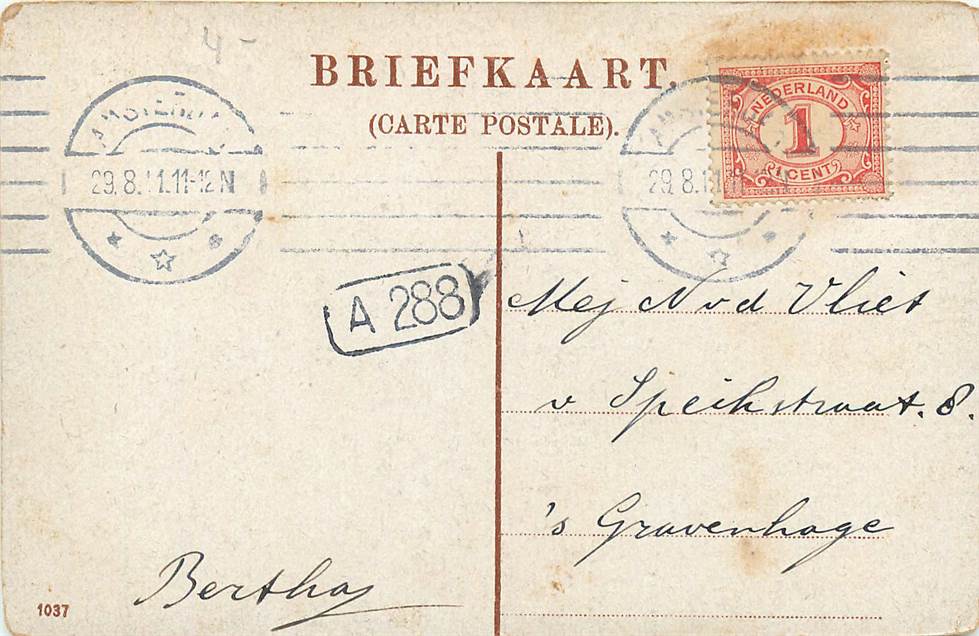 4-
BRIEFKAART.
(CARTE POSTALE).
AMSTERDAM
29.8.11.11-12N
29.8.11
NEDERLAND
1
1 CENT
A 288
Mej N v d Vliet
v Speikstraat. 8.
's Gravenhage
Bertha
1037